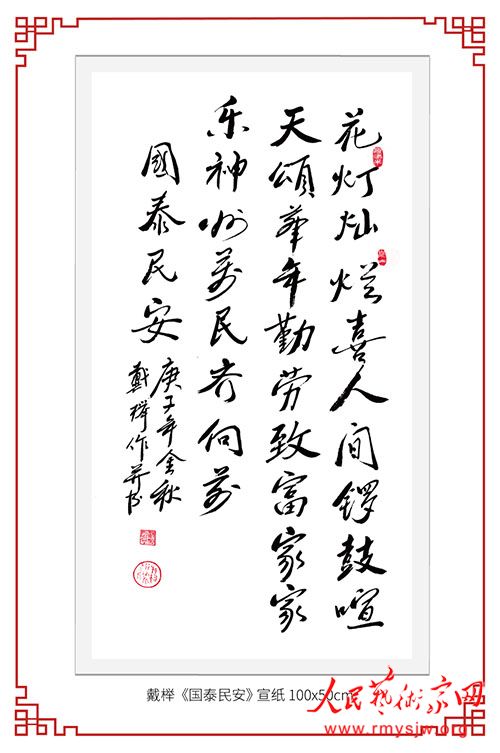 花灯灿烂喜人间锣鼓喧
天颂华年勤劳致富家家
乐神州万民齐向前
國泰民安
庚子年金秋
戴榉作并书
戴榉《国泰民安》宣纸 100x50cm
人民藝術家网
www.rmysjw.org